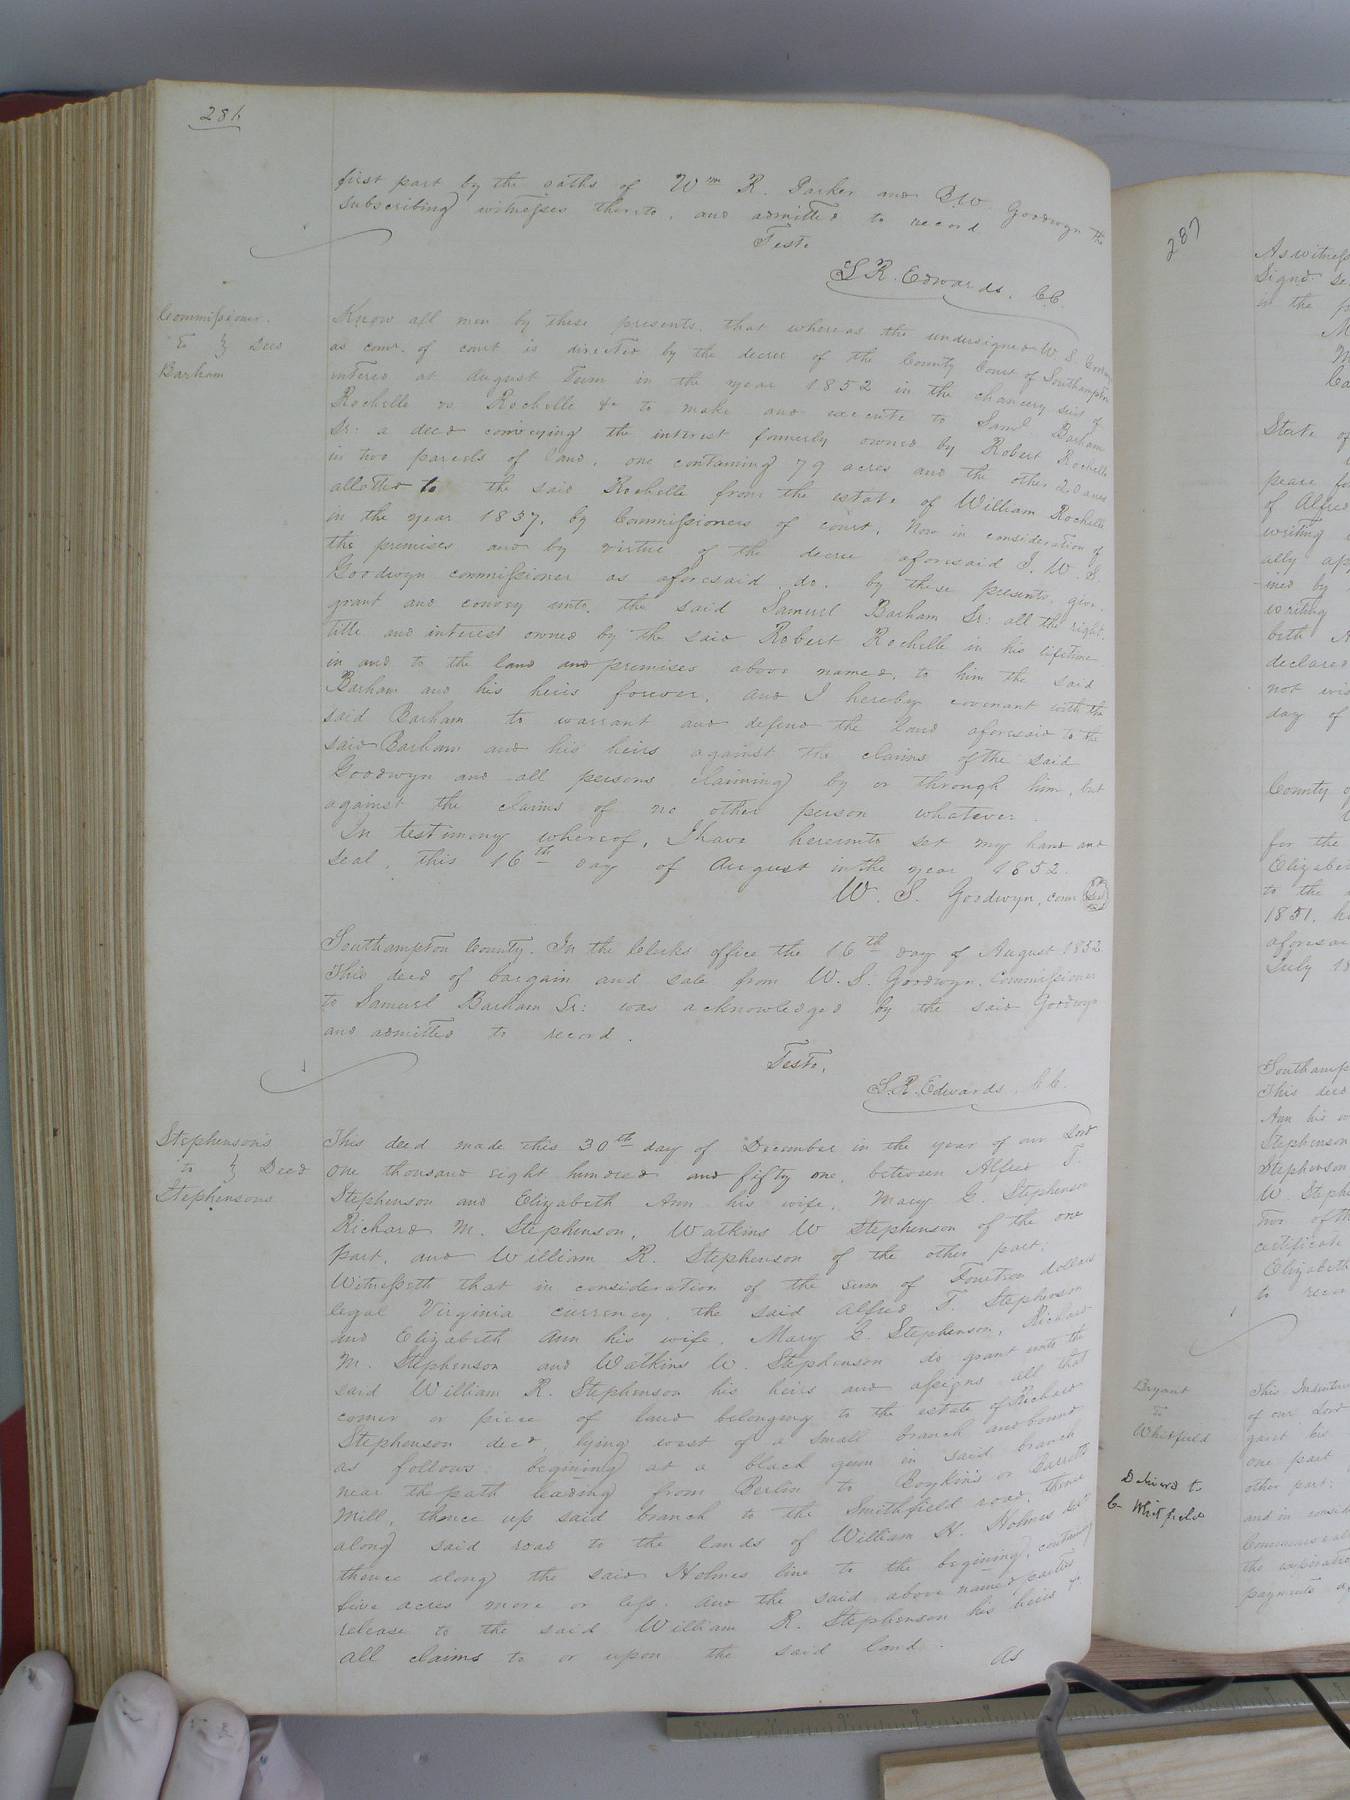 286
first part by the oaths of Wm R. Parker and B.W. Goodwyn the
subscribing witnesses thereto, and admitted to record
Teste.
L R. Edwards. CC.
Commissioner.
to } Deed
Barham
Know all men by these presents, that whereas the undersigned W. S. Goodwyn
as comr. of court is directed by the decree of the County Court of Southampton
intered at August Term in the year 1852 in the chancery suit of
Rochelle vs Rochelle &c to make and execute to Saml Barham
Sr: a deed conveying the interest formerly owned by Robert Rochelle
in two parcels of land, one containing 79 acres and the other 20 acres
allotted to the said Rochelle from the estate of William Rochelle
in the year 1837, by Commissioners of court, Now in consideration of
the premises and by virtue of the decree aforesaid I. W. S.
Goodwyn commissioner as aforesaid do. by these presents, give.
grant and convey unto, the said Samuel Barham Sr: all the right,
title and interest owned by the said Robert Rochelle in his lifetime
in and to the land and premises above named, to him the said
Barham and his heirs forever, and I hereby covenant with the
said Barham to warrant and defend the land aforesaid to the
said Barham and his heirs against the claims of the said
Goodwyn and all persons claiming by or through him, but
against the claims of no other person whatever.
In testimony whereof, I have hereunto set my hand and
seal, this 16th day of August in the year 1852.
W. S. Goodwyn, comr Seal
Southampton County. In the Clerks office the 16th day of August 1852
This deed of bargain and sale from W. S. Goodwyn, Commissioner
to Samuel Barham Sr: was acknowledged by the said Goodwyn
and admitted to record.
Teste,
L.R. Edwards. CC.
Stephenson's
to } Deed
Stephensons
This deed made this 30th day of December in the year of our Lord
one thousand eight hundred and fifty one, between Alfred T.
Stephenson and Elizabeth Ann his wife, Mary E. Stephenson
Richard M. Stephenson, Watkins W Stephenson of the one
part, and William R. Stephenson of the other part:
Witnesseth that in consideration of the sum of Fourteen dollars
legal Virginia currency, the said Alfred T. Stephenson
and Elizabeth Ann his wife, Mary E. Stephenson, Richard
M. Stephenson and Watkins W. Stephenson do grant unto the
said William R. Stephenson his heirs and assigns all that
corner or piece of land belonging to the estate of Richard
Stephenson decd, lying west of a small branch and bound
as follows: begining at a black gum in said branch
near the path leading from Berlin to Boykin's or Barretts
Mill, thence up said branch to the Smithfield road, thence
along said road to the lands of William H. Holmes Est
thence along the said Holmes line to the begining, containing
five acres more or less. and the said above named parties
release to the said William R. Stephenson his heirs &
all claims to or upon the said land.
As
287
As witness
Signd se
in the p
State of
peace for
of Alfred
writing
ally ap
ined by
writing
beth A
declared
not wis
day of
County o
for the
Elizabe
to the
1851. h
aforesai
July 18
Southamp
This deed
Ann his w
Stephenson
Stephenson
W. Steph
two of th
certificate
Elizabeth
to recor
Bryant
to
Whitfield
Deliverd to
C. Whitfield
This Indentur
of our Lord
gant his
one part
other part:
and in consid
Commonweal
the expiratio
payments a